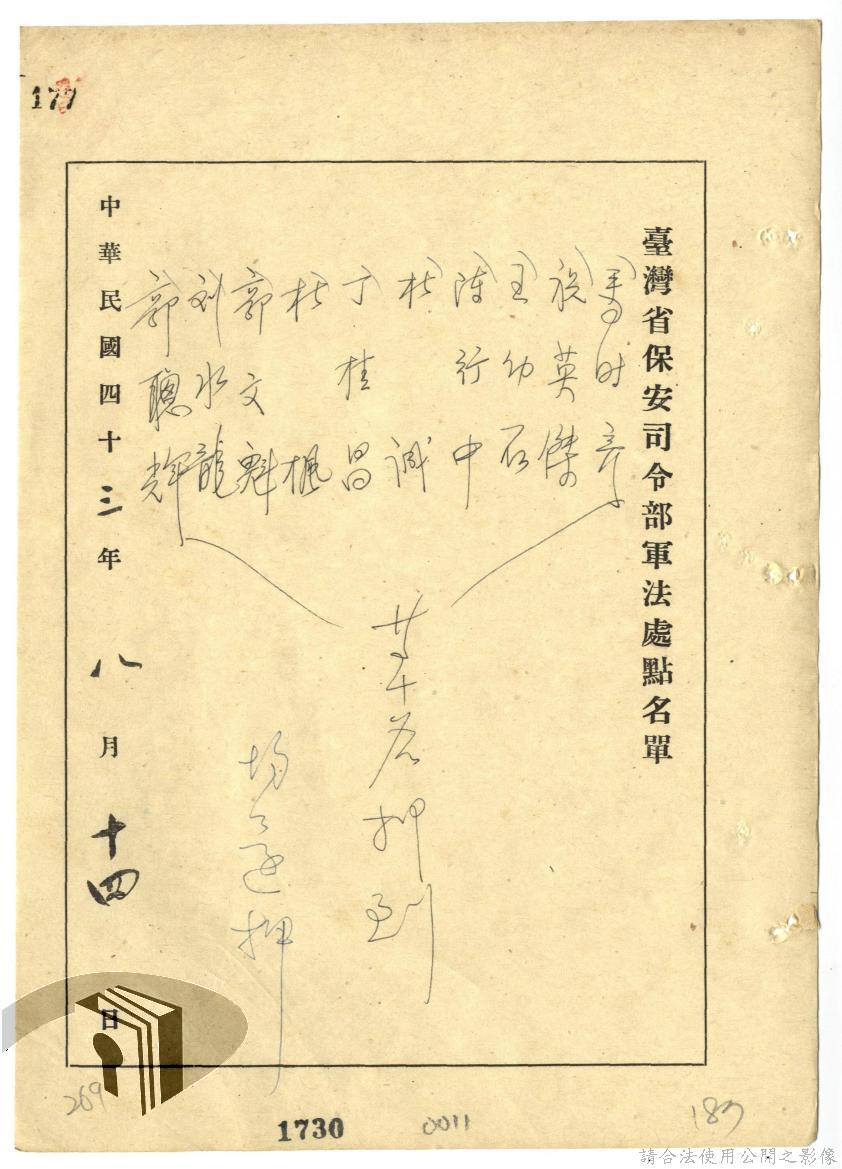 177
臺灣省保安司令部軍法處點名單
馬时彦
祝英傑
王幼石
陈行中
杜誠
丁桂昌
杜楓
郭文魁
刘水龍
郭聰輝
等十名押到
均還押
中華民國四十三年八月十四日
269
1730
0011
187
請合法使用公開之影像